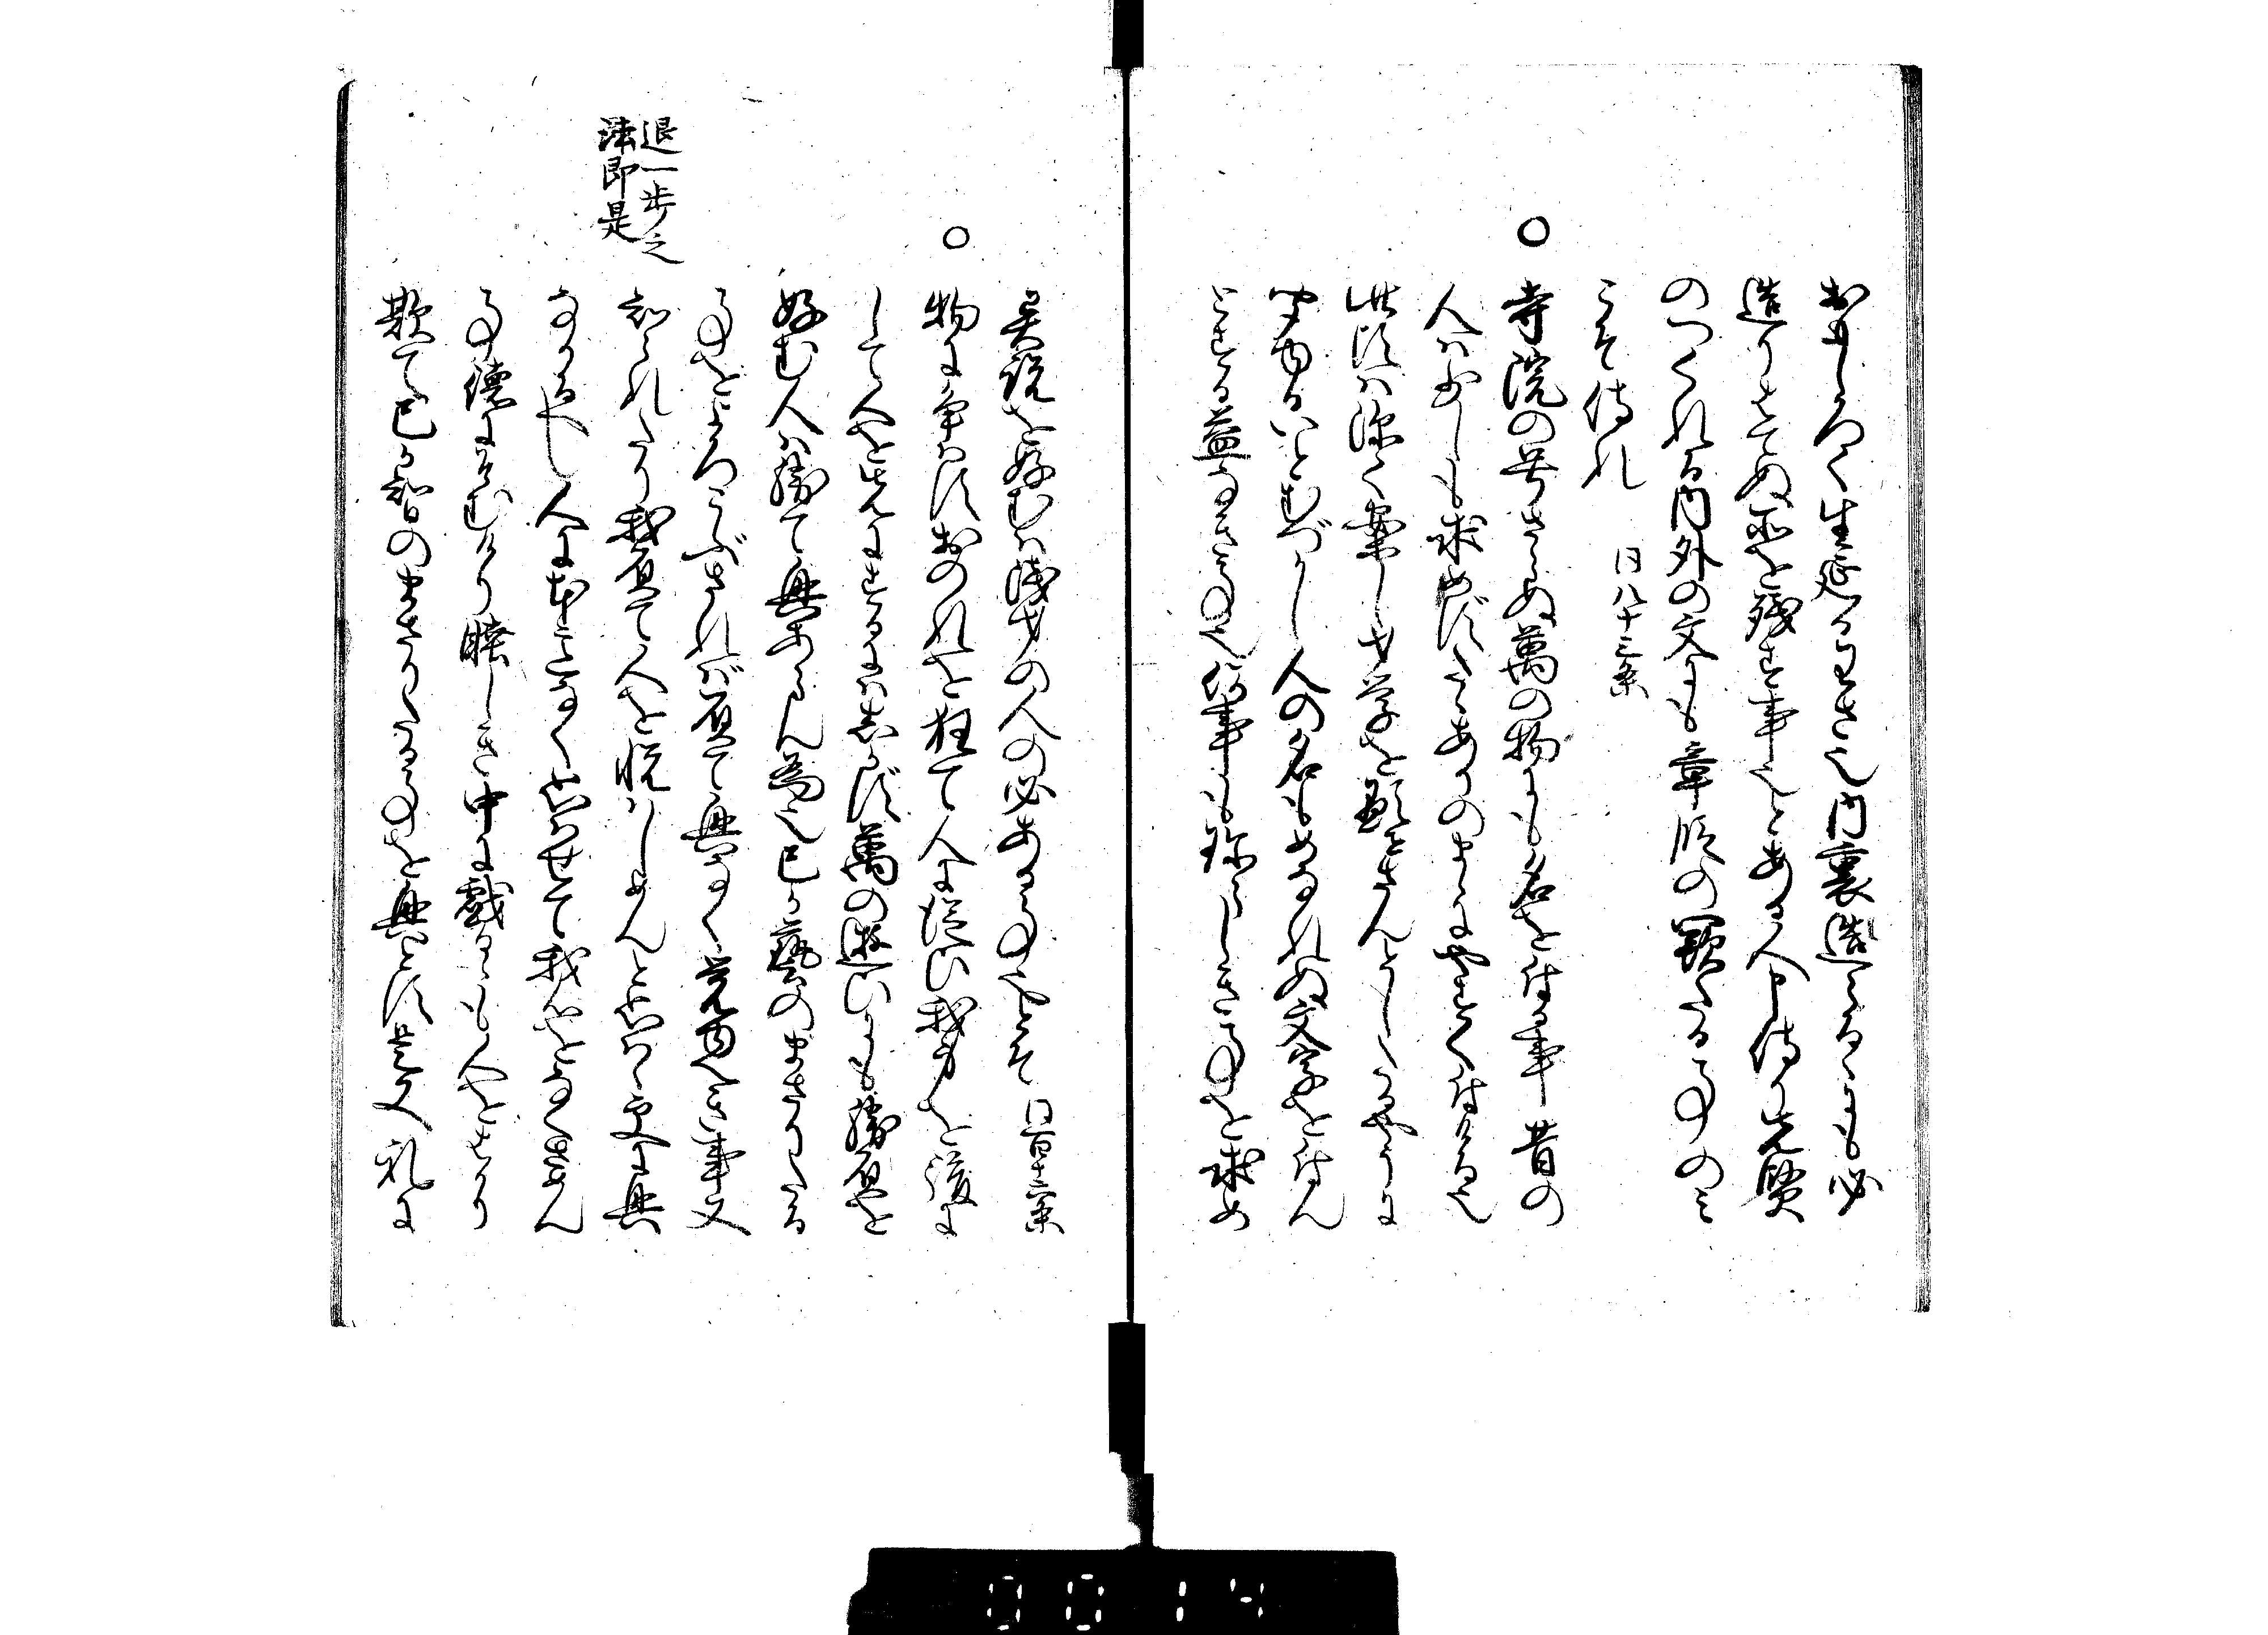 おもしろく生延るわさ也内裏造らるゝにも必
造りはてぬ所を残す事也とある人申侍り先賢
のつくれる内外の文にも章段の闕たる事のみ
こそ侍れ 同八十二条
○寺院の号さらぬ萬の物にも名を付る事昔の
人はすこしも求めずたゝありのまゝにやすく付ける也
此頃は深く案し才学を顕はさんとしたるやうに
聞ゆるいとむづかし人の名もめなれぬ文字を付ん
とする益なき事也何事も珍らしき事を求め
異説を好むは浅才の人の必ある事也とそ 同百十六条
○物に争はすおのれを枉て人に従ひ我身を後に
して人を先にするにはしかず萬の遊ひにも勝負を
好む人は勝て興あらん為也己か藝のまさりたる
事をよろこぶされば負て興なく覚ゆへき事又
知られたり我負て人を悦はしめんと思はゝ更に興
なかるへし人に本意なく思はせて我心をなくさめん
事徳にそむけり睦しき中に戯るゝも人をはかり
欺て己か智のまさりたる事を興とす是又礼に
退一歩之
法即是